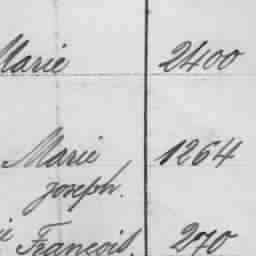 Marie 2400
Marie 1264
Joseph.
François. 270